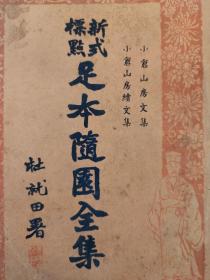 小倉山房文集
小倉山房續文集
新式
標點
足本隨園全集
杜就田署